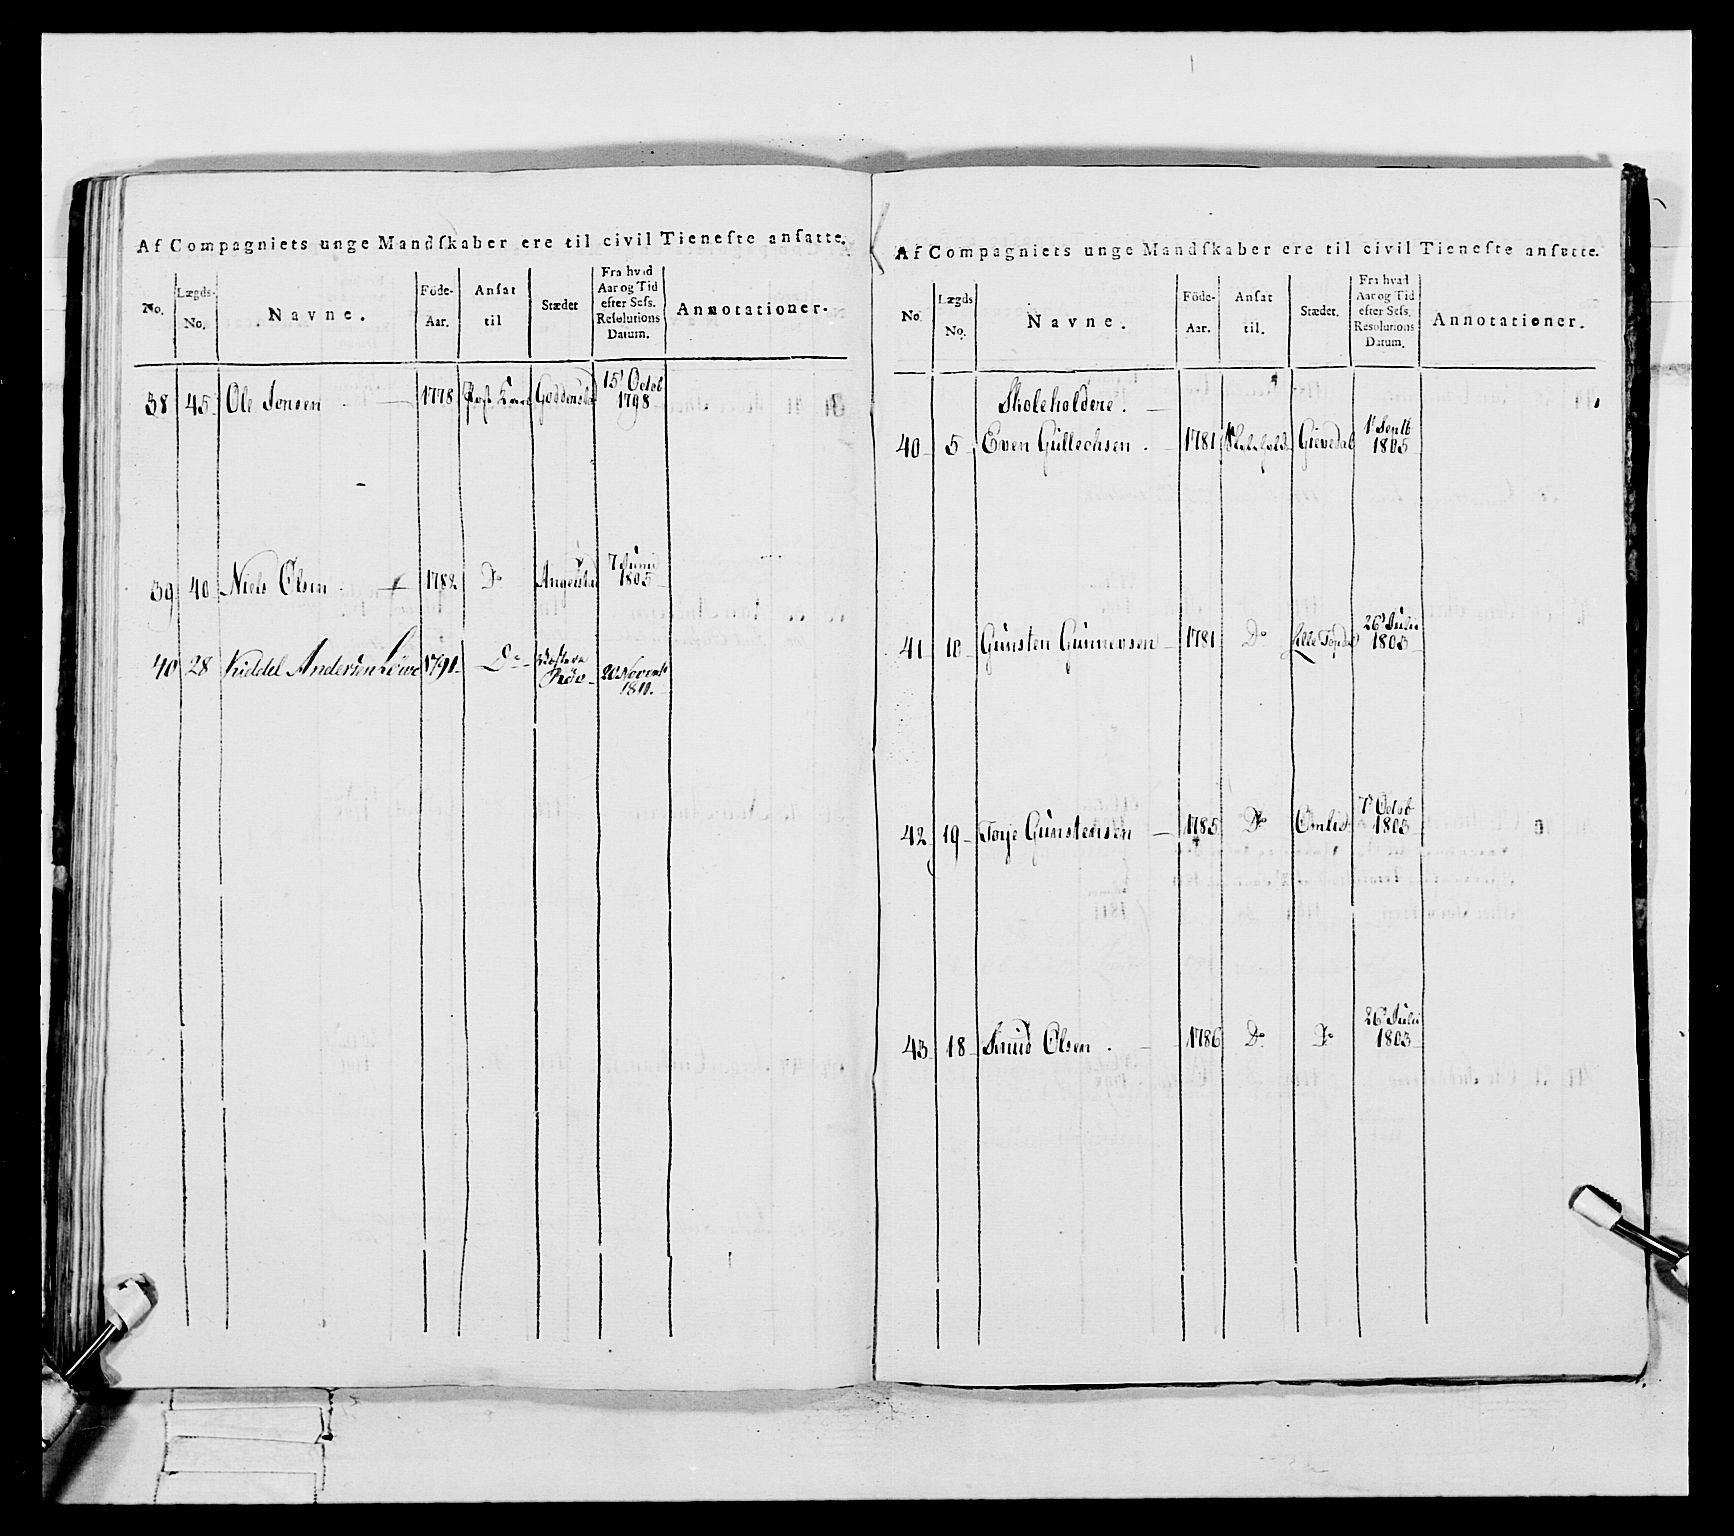 Af Compagniets unge Mandſkaber ere til civil Tieneſte anſatte.
No. Lægds-No. Navne. Föde-Aar. Anſat til Stædet Fra hvad Aar og Tid efter Seſs. Reſolutions Datum. Annotationer.
38 45 Ole Jensen 1778 15d Octob 1798
39 40 Niels Olsen 1782 Do 7 Junii 1805
40 28 Andersen 1791 Do 20 Novemb 1811.
Af Compagniets unge Mandſkaber ere til civil Tieneſte anſatte.
No. Lægds No. Navne. Föde-Aar. Anſat til. Stædet. Fra hvad Aar og Tid efter Seſs. Resolutions Datum. Annotationer.
Skoleholdere.
40 5 Even Gullechsen 1781 Gievedal 1805
41 10 Gunsten Gunnersen 1781 Do 26d Julii 1803
42 19 Torje Gunstensen 1785 Do Omlid 7d Octob 1803
43 18 Knud Olsen 1786 Do Do 26d Julii 1803